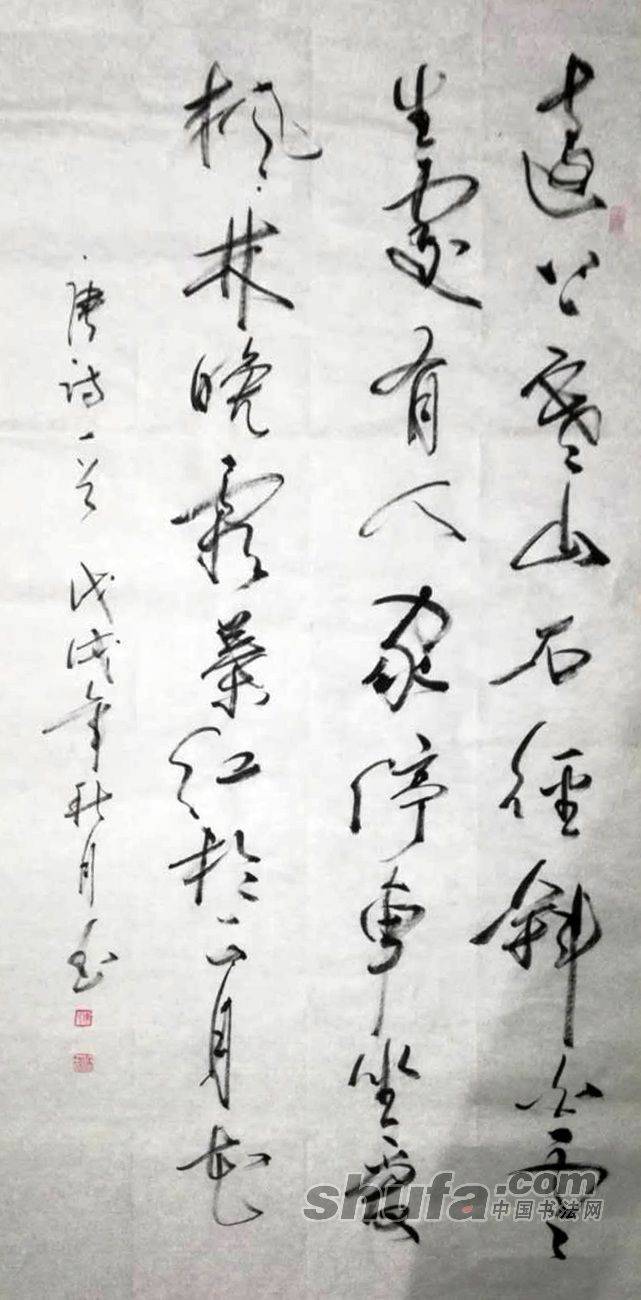 遠上寒山石徑斜白雲
生處有人家停車坐愛
楓林晚霜葉紅於二月花
唐詩一首 戊戌年秋月
shufa.com
中国书法网